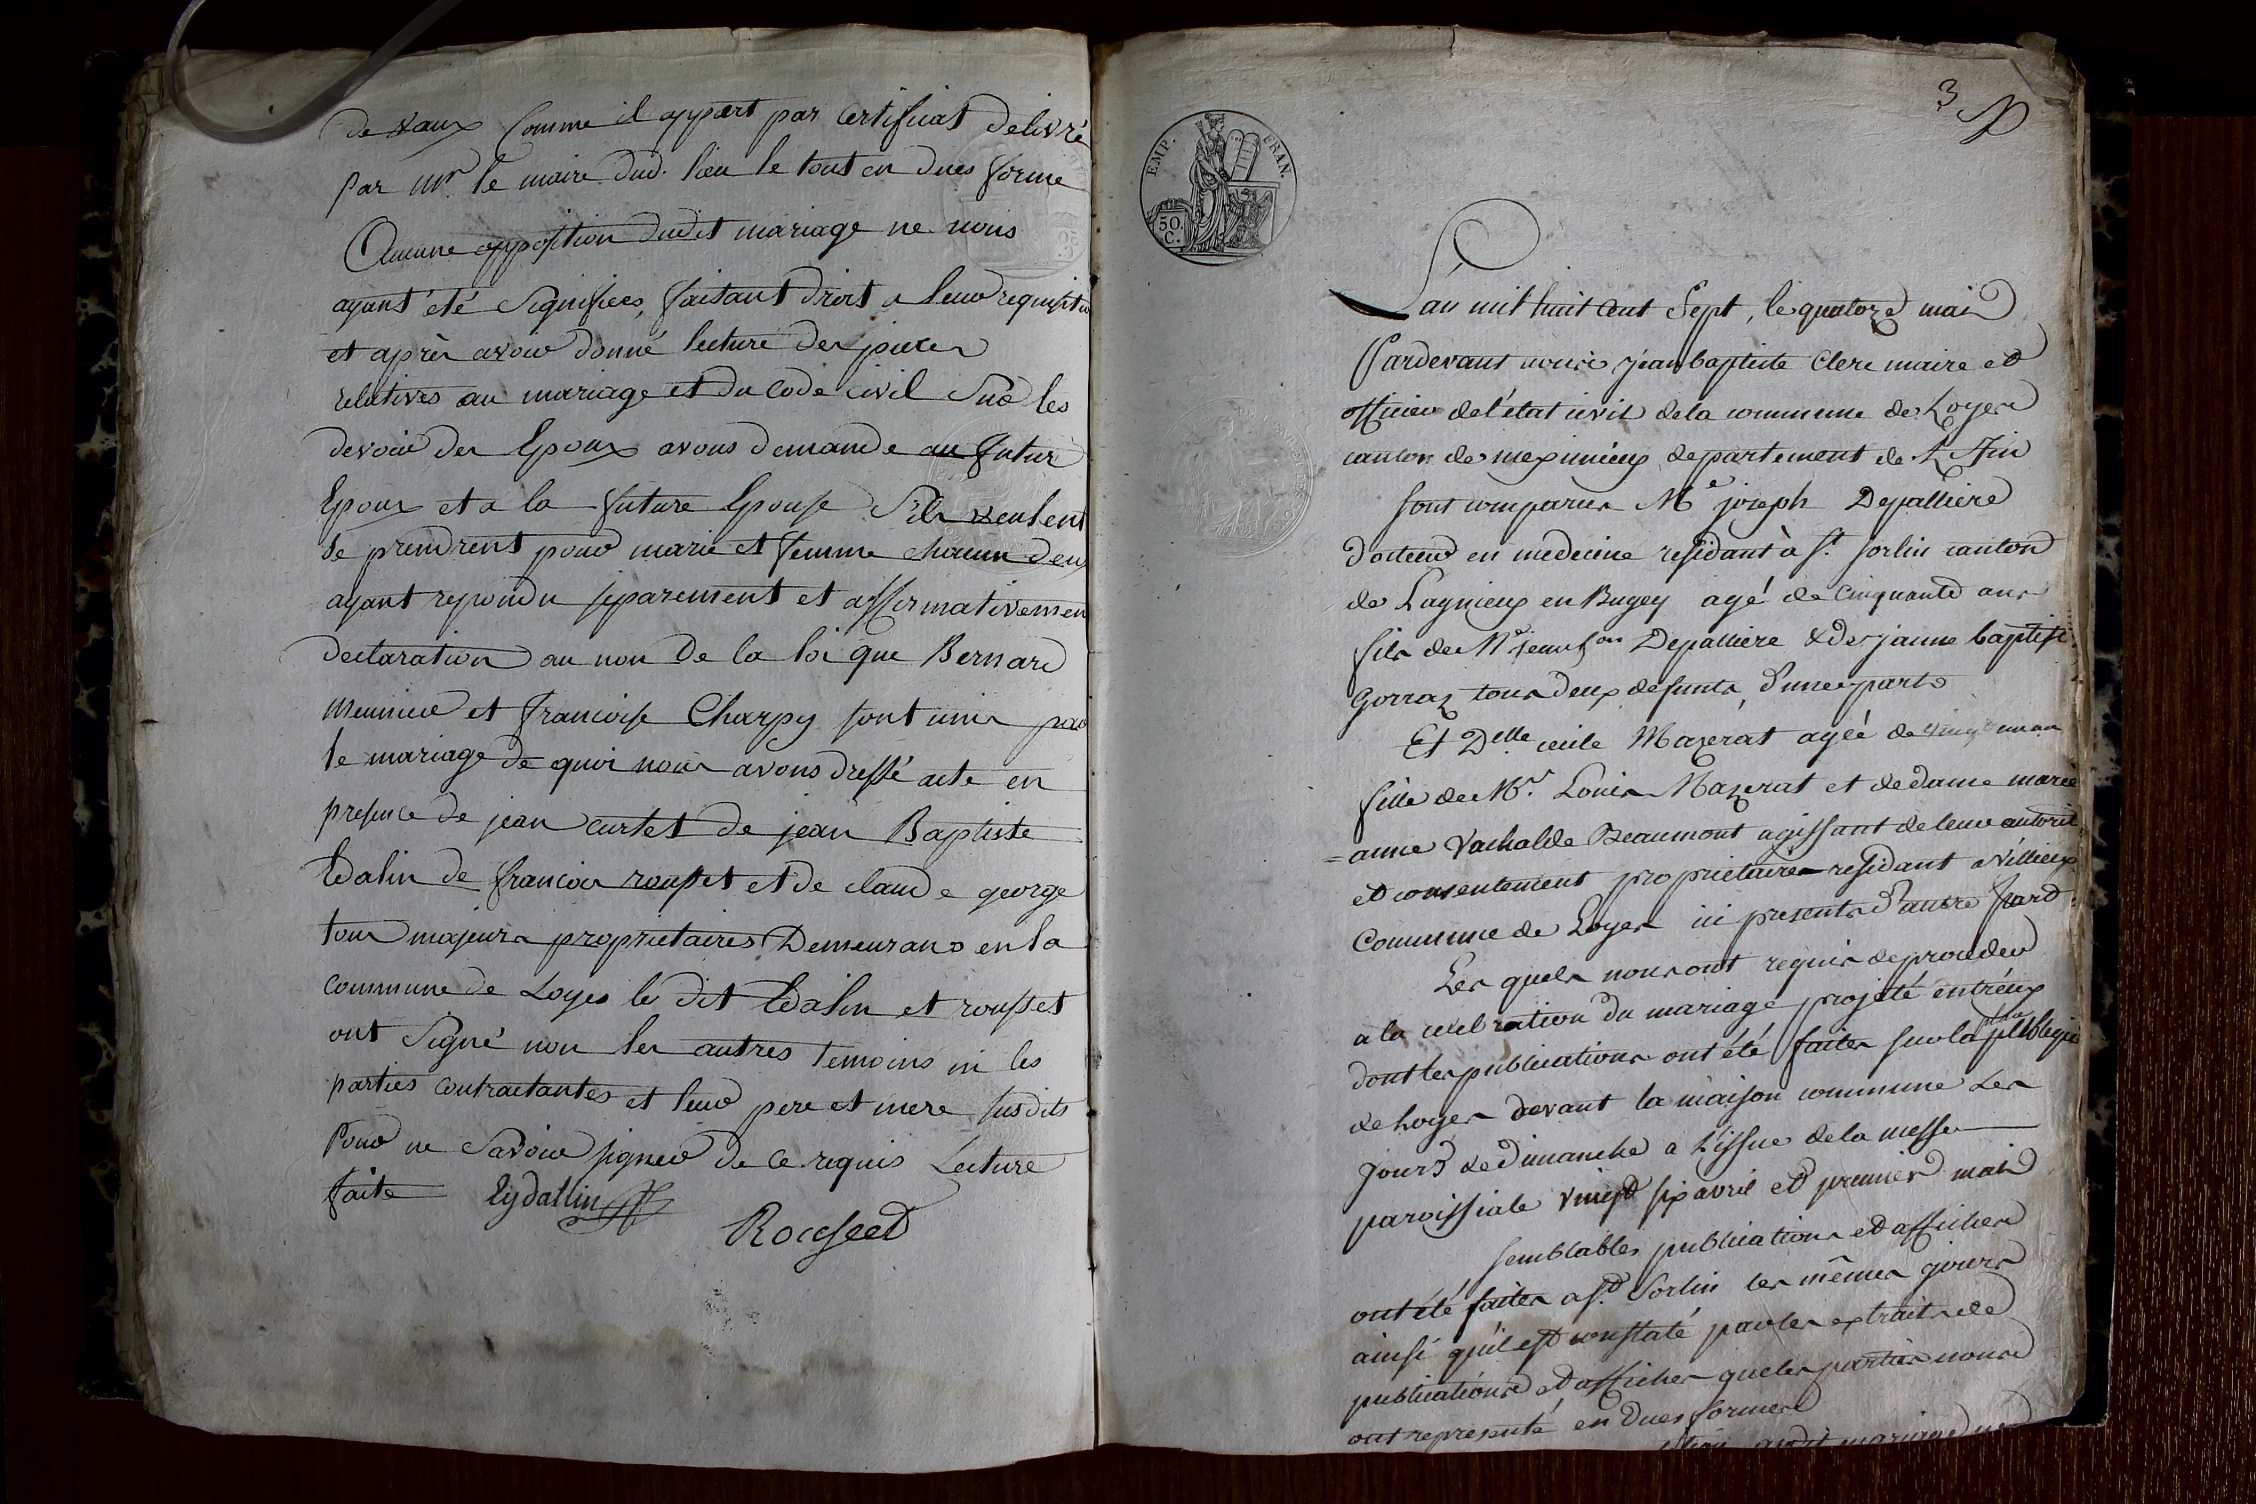 de vaux Comme il appert par Certificat delivré
par Mr. le maire dud. lieu le tout en dues forme
Aucune opposition dudit mariage ne nous
ayant été Signifiées, faisant droit a leur requisition
et après avoir donné lecture des pieces
relatives au mariage et du Code Civil Sur les
devoir des Epoux avons demande au futur
Epoux et a la future Epouse S'ils veulent
se prendrent pour marie et femme chacun deux
ayant repondu separement et affirmativemen
declaration au non de la loi que Bernard
meunier et francoise Charpy sont unis par
le mariage de quoi nous avons dressé acte en
presence de jean curtet de jean Baptiste
Edalin de francois rousset et de claude george
tous majeurs proprietaires Demeurans en la
commune de Loyes le dit Edalin et rousset
ont Signé non les autres temoins ni les
parties contractantes et leur pere et mere susdits
Pour ne Savoir signer de ce requis Lecture
faite Eydallin
Rousset
3
EMP. FRAN.
50. C.
L'an mil huit cent Sept, le quatorze mai
Pardevant nous jean baptiste Clerc maire et
officier de l'état civil de la commune de Loyes
canton de meximieux departement de L'Ain
sont comparus Me joseph Depalliere
docteur en medecine residant à St. sorlin canton
de Lagnieux en Bugey agé de cinquante ans
fils de Me jean Depalliere & de jeanne baptiste
Gorraz tous deux defunts, d'une part
Et Delle. cecile Mazerat agée de vingt un an
fille de Mr. Louis Mazerat et de dame marie
= anne Vachalde Beaumont agissant de leur autorité
et consentement proprietaires residant a Villieux
Commune de Loyes ici presents d'autre part.
Les quels nous ont requis de proceder
a la celebration du mariage projeté entr'eux
dont les publications ont été faites sur la place publique
de Loyes devant la maison commune les
jours de Dimanche a L'issue de la messe
paroissiale vingt six avril et premier mai
semblables publications et affiches
ont été faites a St. Sorlin les mêmes jours
ainsi qu'il est constaté par les extraits de
publications et affiches que les parties nous
ont représenté en dues formes
audit mariage ne